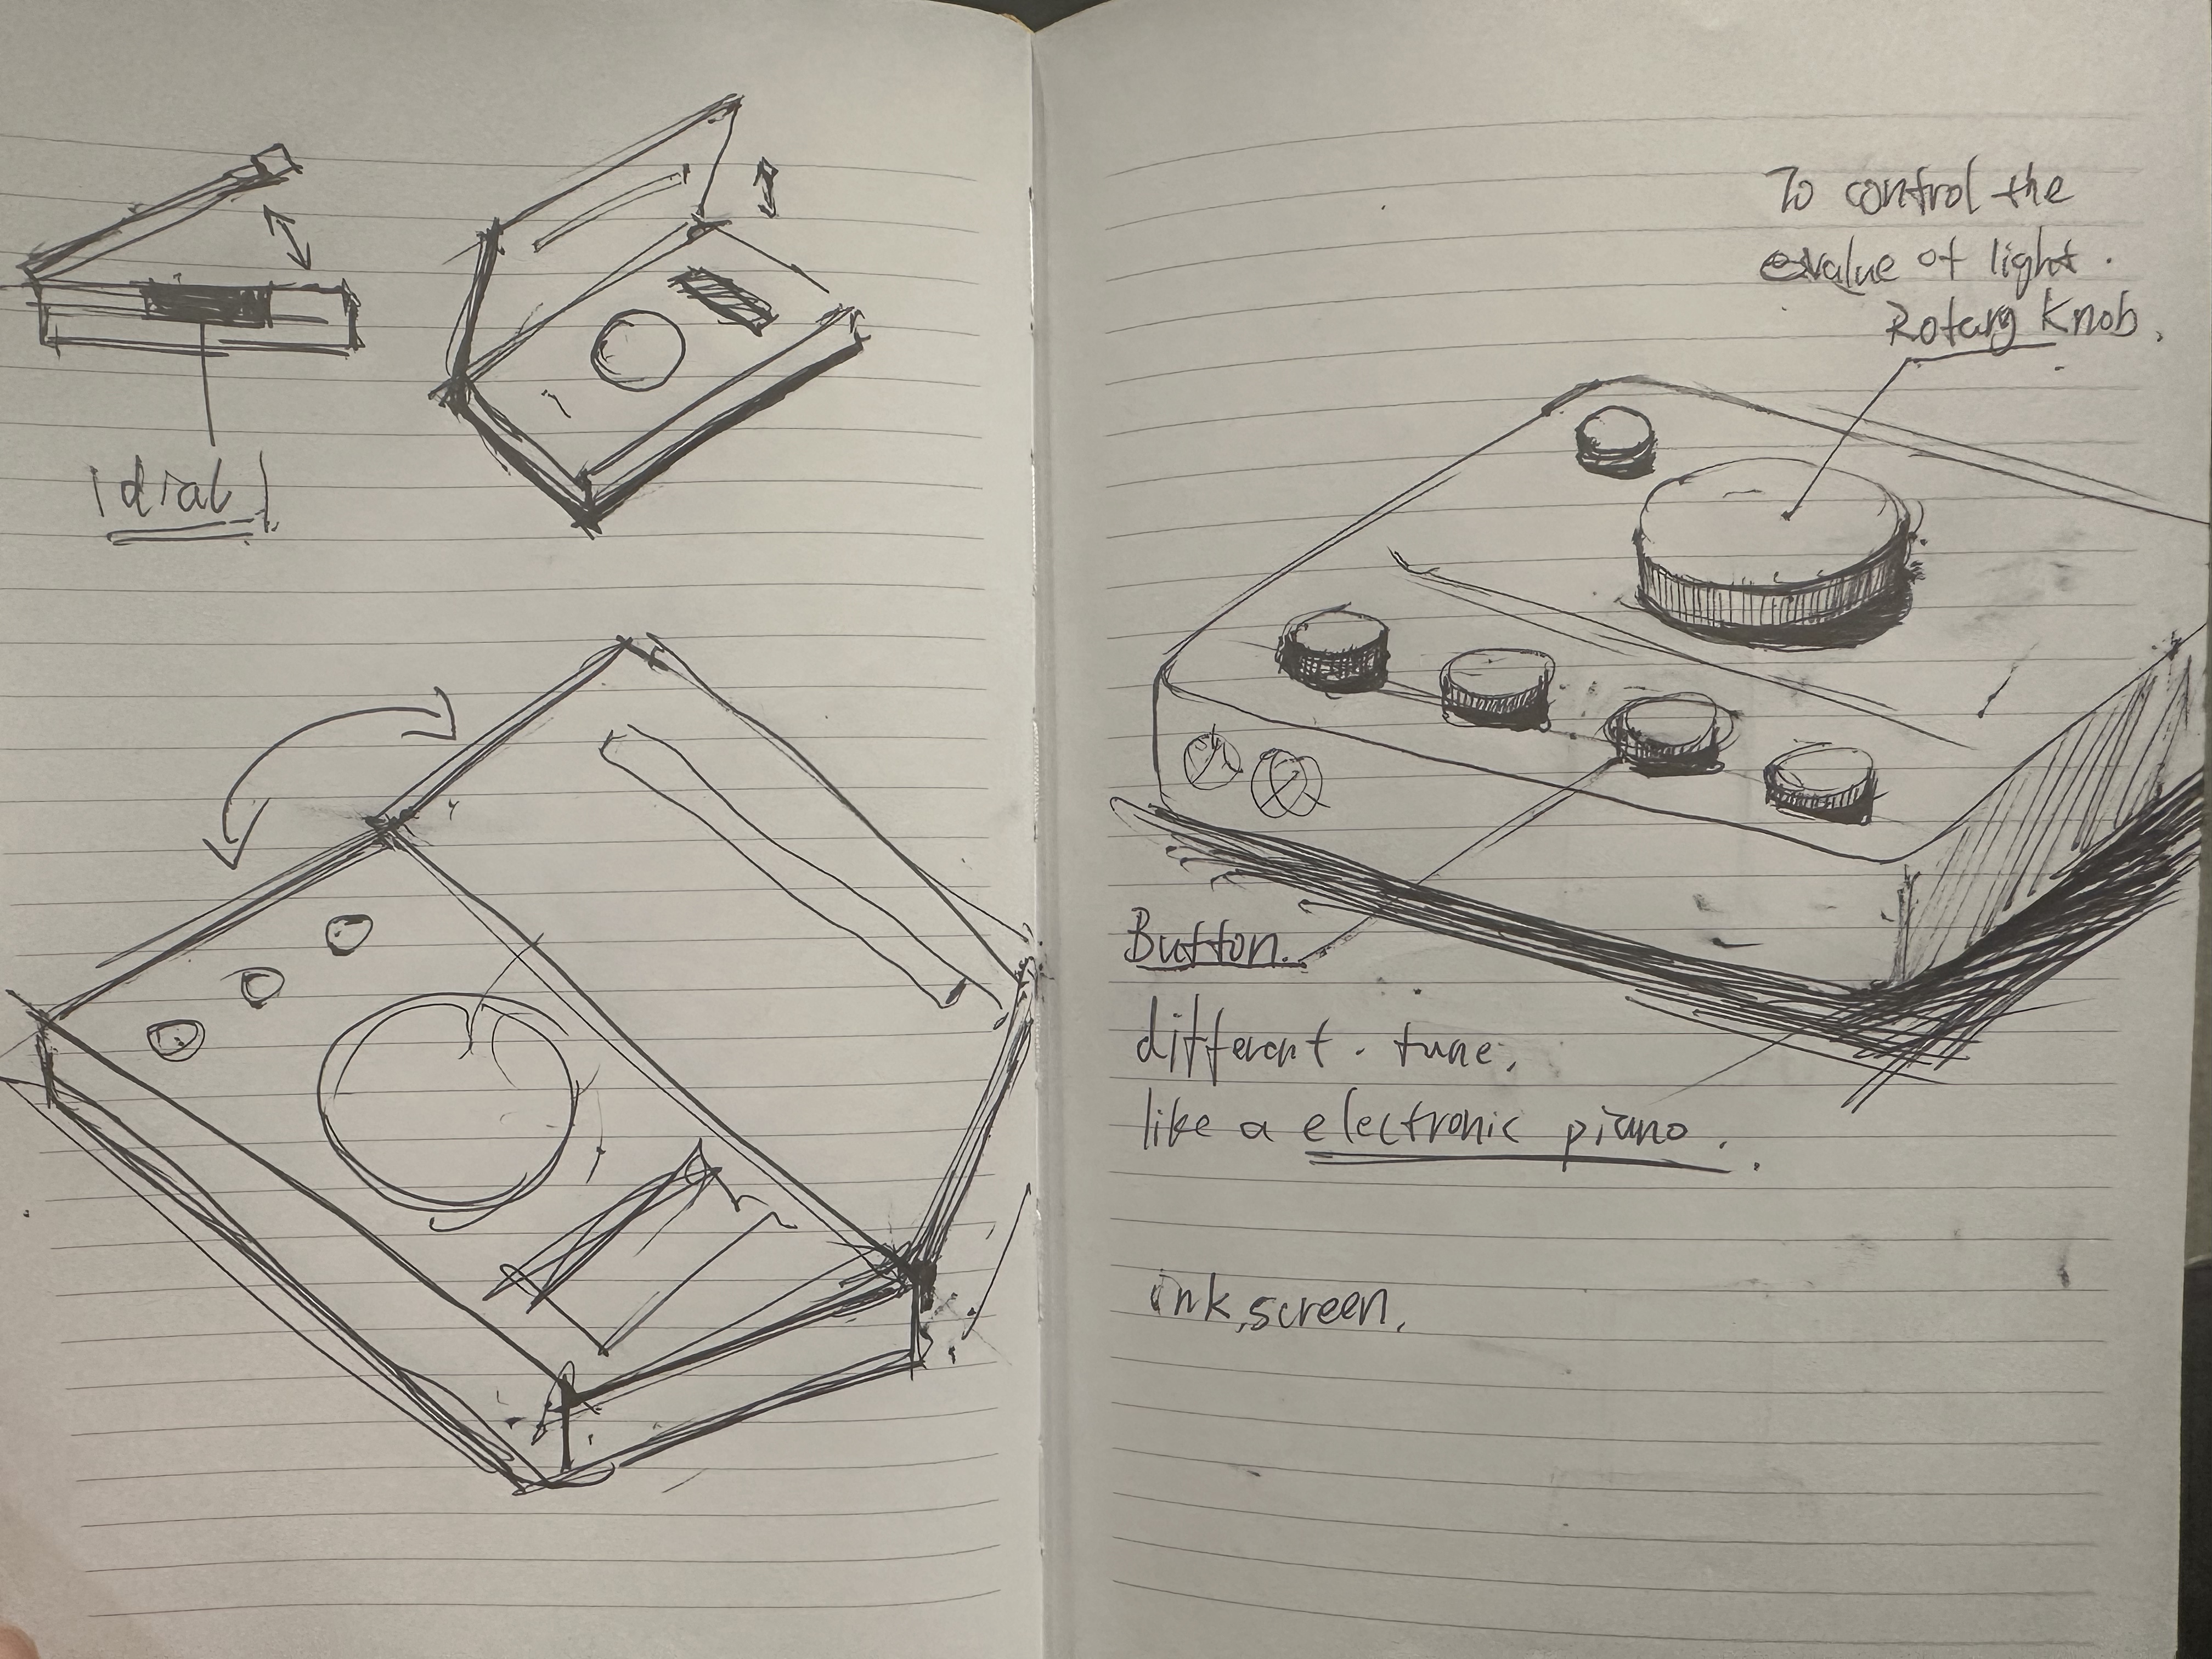 dial
To control the
value of light.
Rotary Knob.
Button.
different. tune,
like a electronic piano.
ink screen.